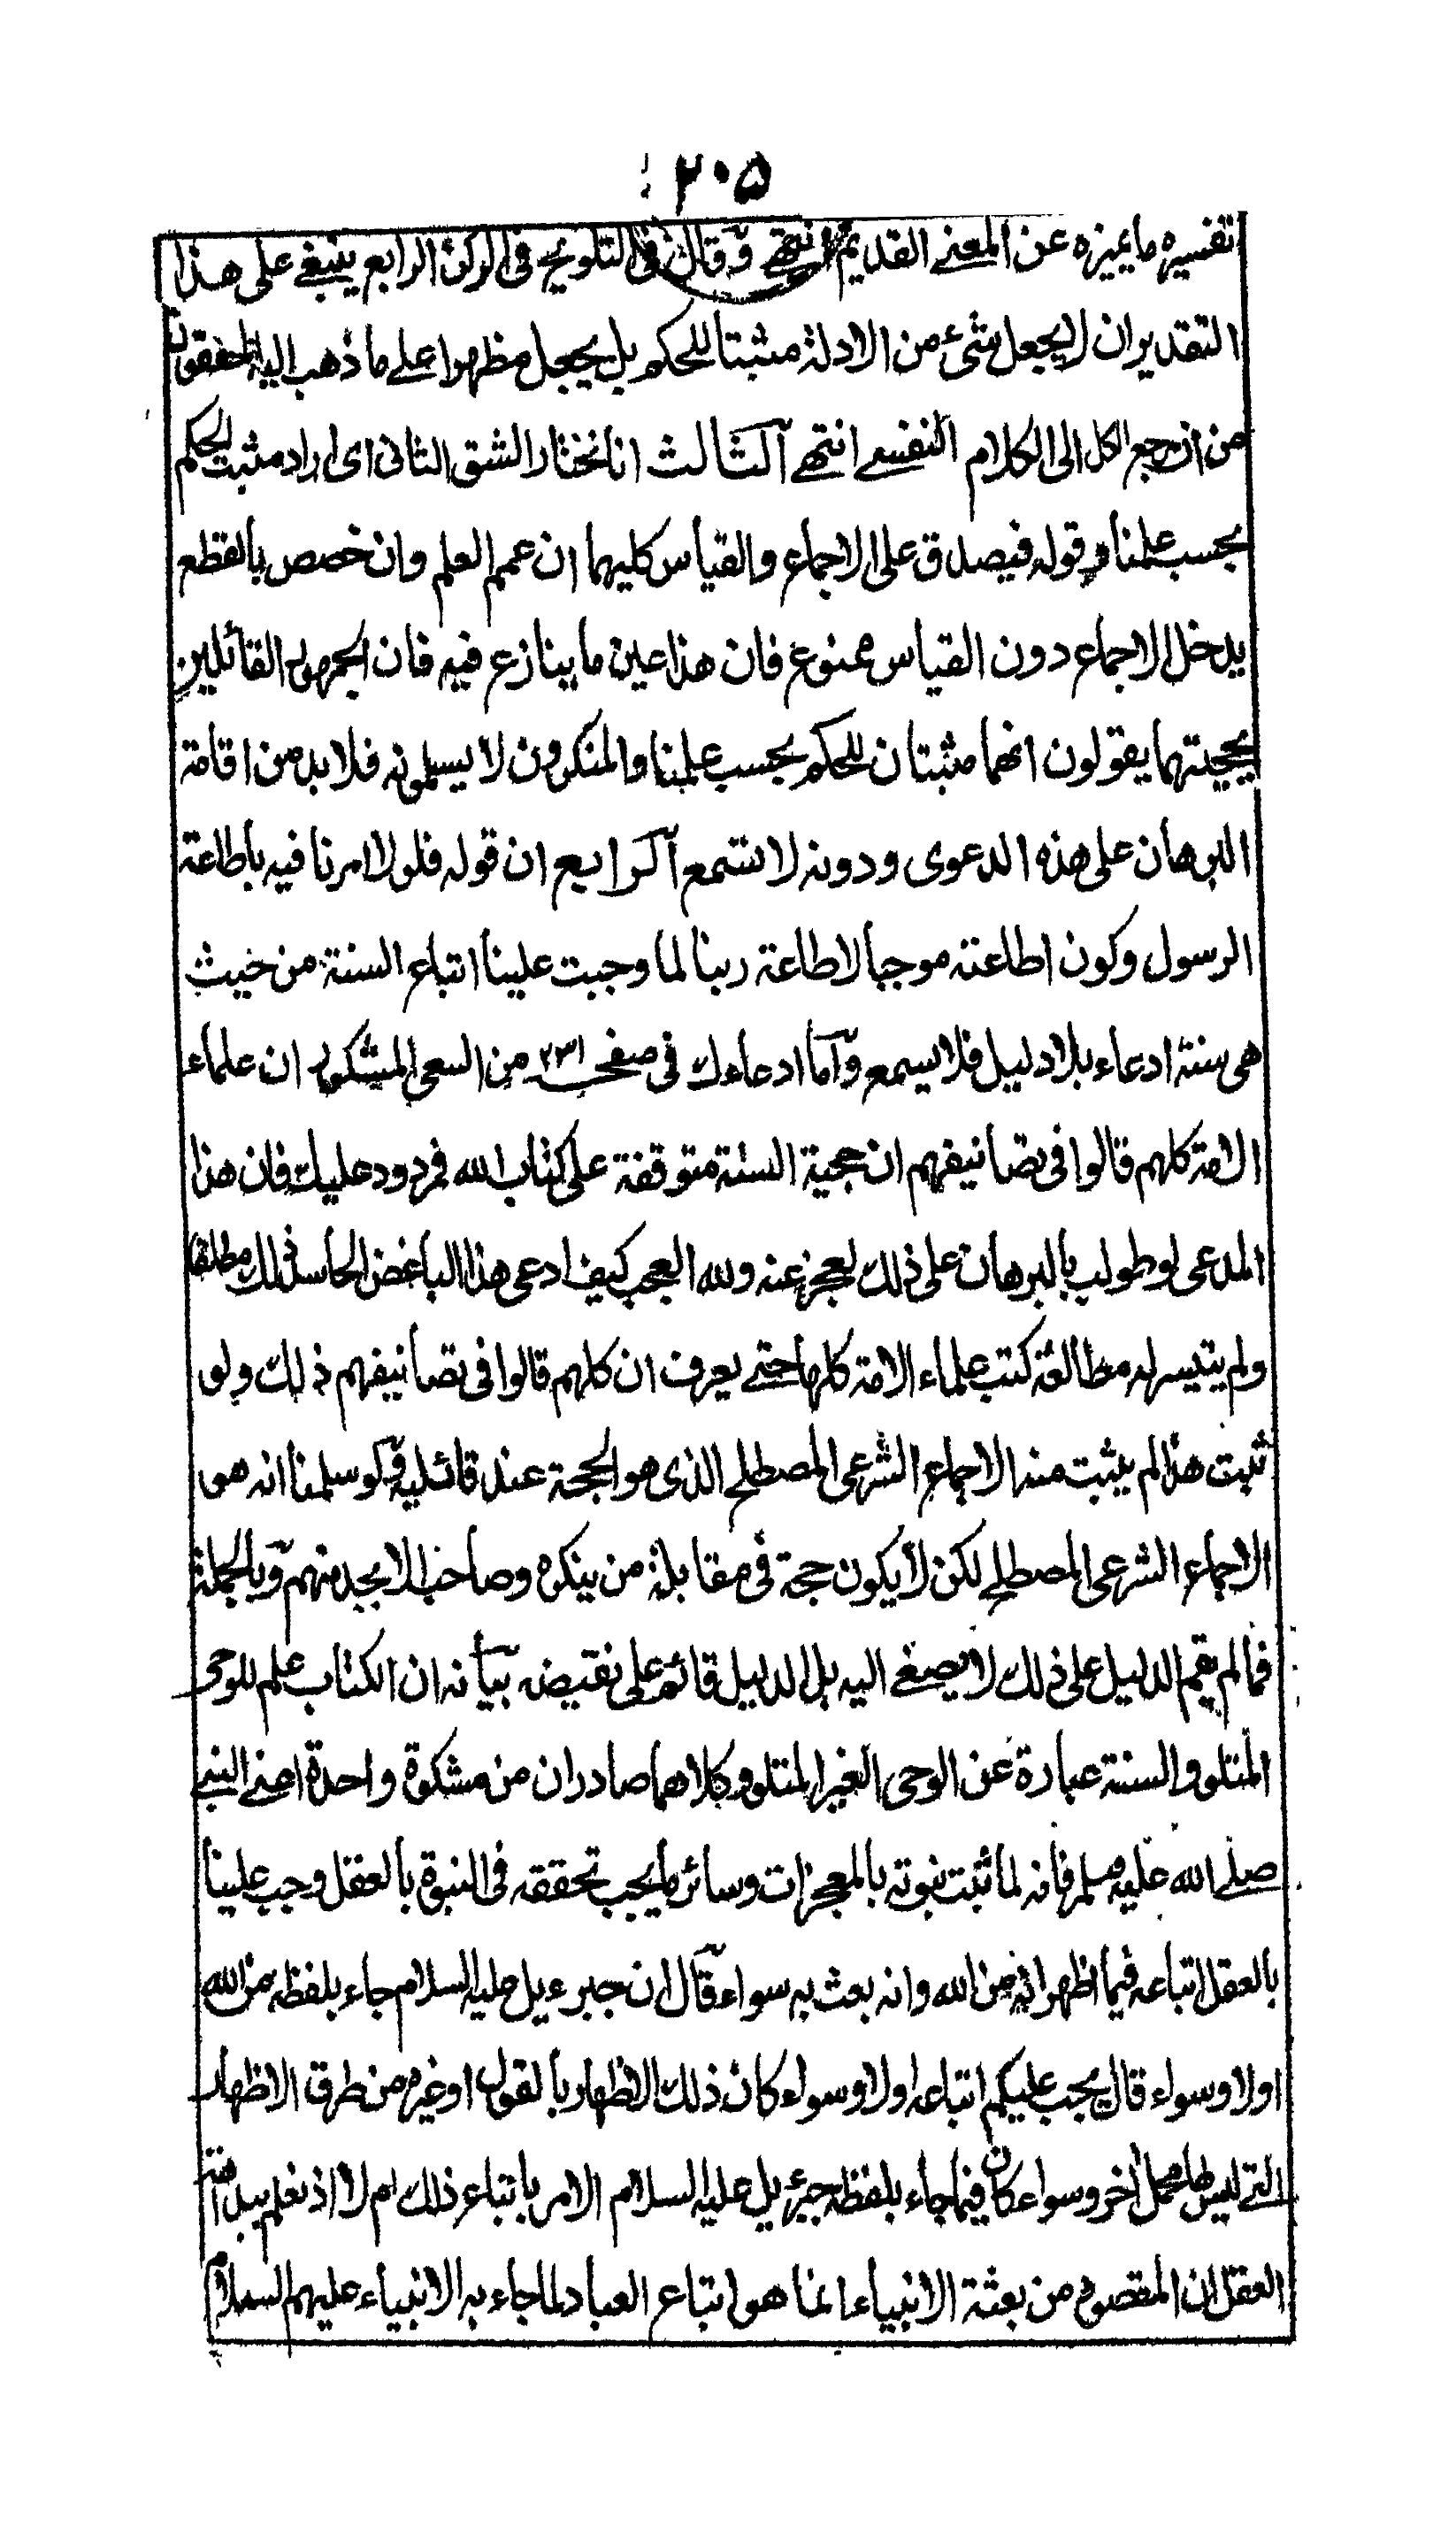 ۲۰۵
تفسيره ما يميزه عن المعنى القديم انتهى وقال فى التلويح فى الركن الرابع ينبغى على هذا
التقدير ان لا يجعل شئ من الادلة مثبتا للحكم بل يجعل مظهرا على ما ذهب اليه المحققون
من ان مرجع الكل الى الكلام النفسى انتهى الثالث انا نختار الشق الثانى اى اراد مثبت الحكم
بحسب علمنا وقوله فيصدق على الاجماع والقياس كليهما ان عمم العلم وان خصص بالقطع
يدخل الاجماع دون القياس ممنوع فان هذا عين ما ينازع فيه فان الجمهور القائلين
بحجيتهما يقولون انهما مثبتان للحكم بحسب علمنا والمنكرون لا يسلمونه فلا بد من اقامة
البرهان على هذه الدعوى ودونه لا تسمع الرابع ان قوله فلولا امرنا فيه باطاعة
الرسول وكون اطاعته موجبا لاطاعة ربنا لما وجبت علينا اتباع السنة من حيث
هى سنة ادعاء بلا دليل فلا يسمع واما ادعاءك فى صفحه ٢٣١ من السعى المشكور ان علماء
الامة كلهم قالوا فى تصانيفهم ان حجية السنة متوقفة على كتاب الله فمردود عليك فان هذا
المدعى لو طولب بالبرهان على ذلك لعجز عنه ولله العجب كيف ادعى هذا الباغض الحاسد ذلك مطلقا
ولم يتيسر له مطالعة كتب علماء الامة كلها حتى يعرف ان كلهم قالوا فى تصانيفهم ذلك ولو
ثبت هذا لم يثبت منه الاجماع الشرعى المصطلح الذى هو الحجة عند قائليه ولو سلمنا انه هو
الاجماع الشرعى المصطلح لكن لا يكون حجة فى مقابلة من ينكره وصاحب الابجد منهم وبالجملة
فما لم يقم الدليل على ذلك لا يصغى اليه بل الدليل قائم على نقيضه بيانه ان الكتاب علم للوحى
المتلو والسنة عبارة عن الوحى الغير المتلو وكلاهما صادران من مشكوة واحدة اعنى النبى
صلى الله عليه وسلم فانه لما ثبت نبوته بالمعجزات وسائر ما يجب تحققه فى النبوة بالعقل وجب علينا
بالعقل اتباعه فيما اظهر انه من الله وانه بعث به سواء قال ان جبرءيل عليه السلام جاء بلفظه من الله
اولا وسواء قال يجب عليكم اتباعه اولا وسواء كان ذلك الاظهار بالقول او غيره من طرق الاظهار
التى ليس لها محمل اخر وسواء كان فيما جاء بلفظه جبرئيل عليه السلام الامر باتباع ذلك ام لا اذ نعلم ببداهة
العقل ان المقصود من بعثة الانبياء انما هو اتباع العباد لما جاء به الانبياء عليهم السلام